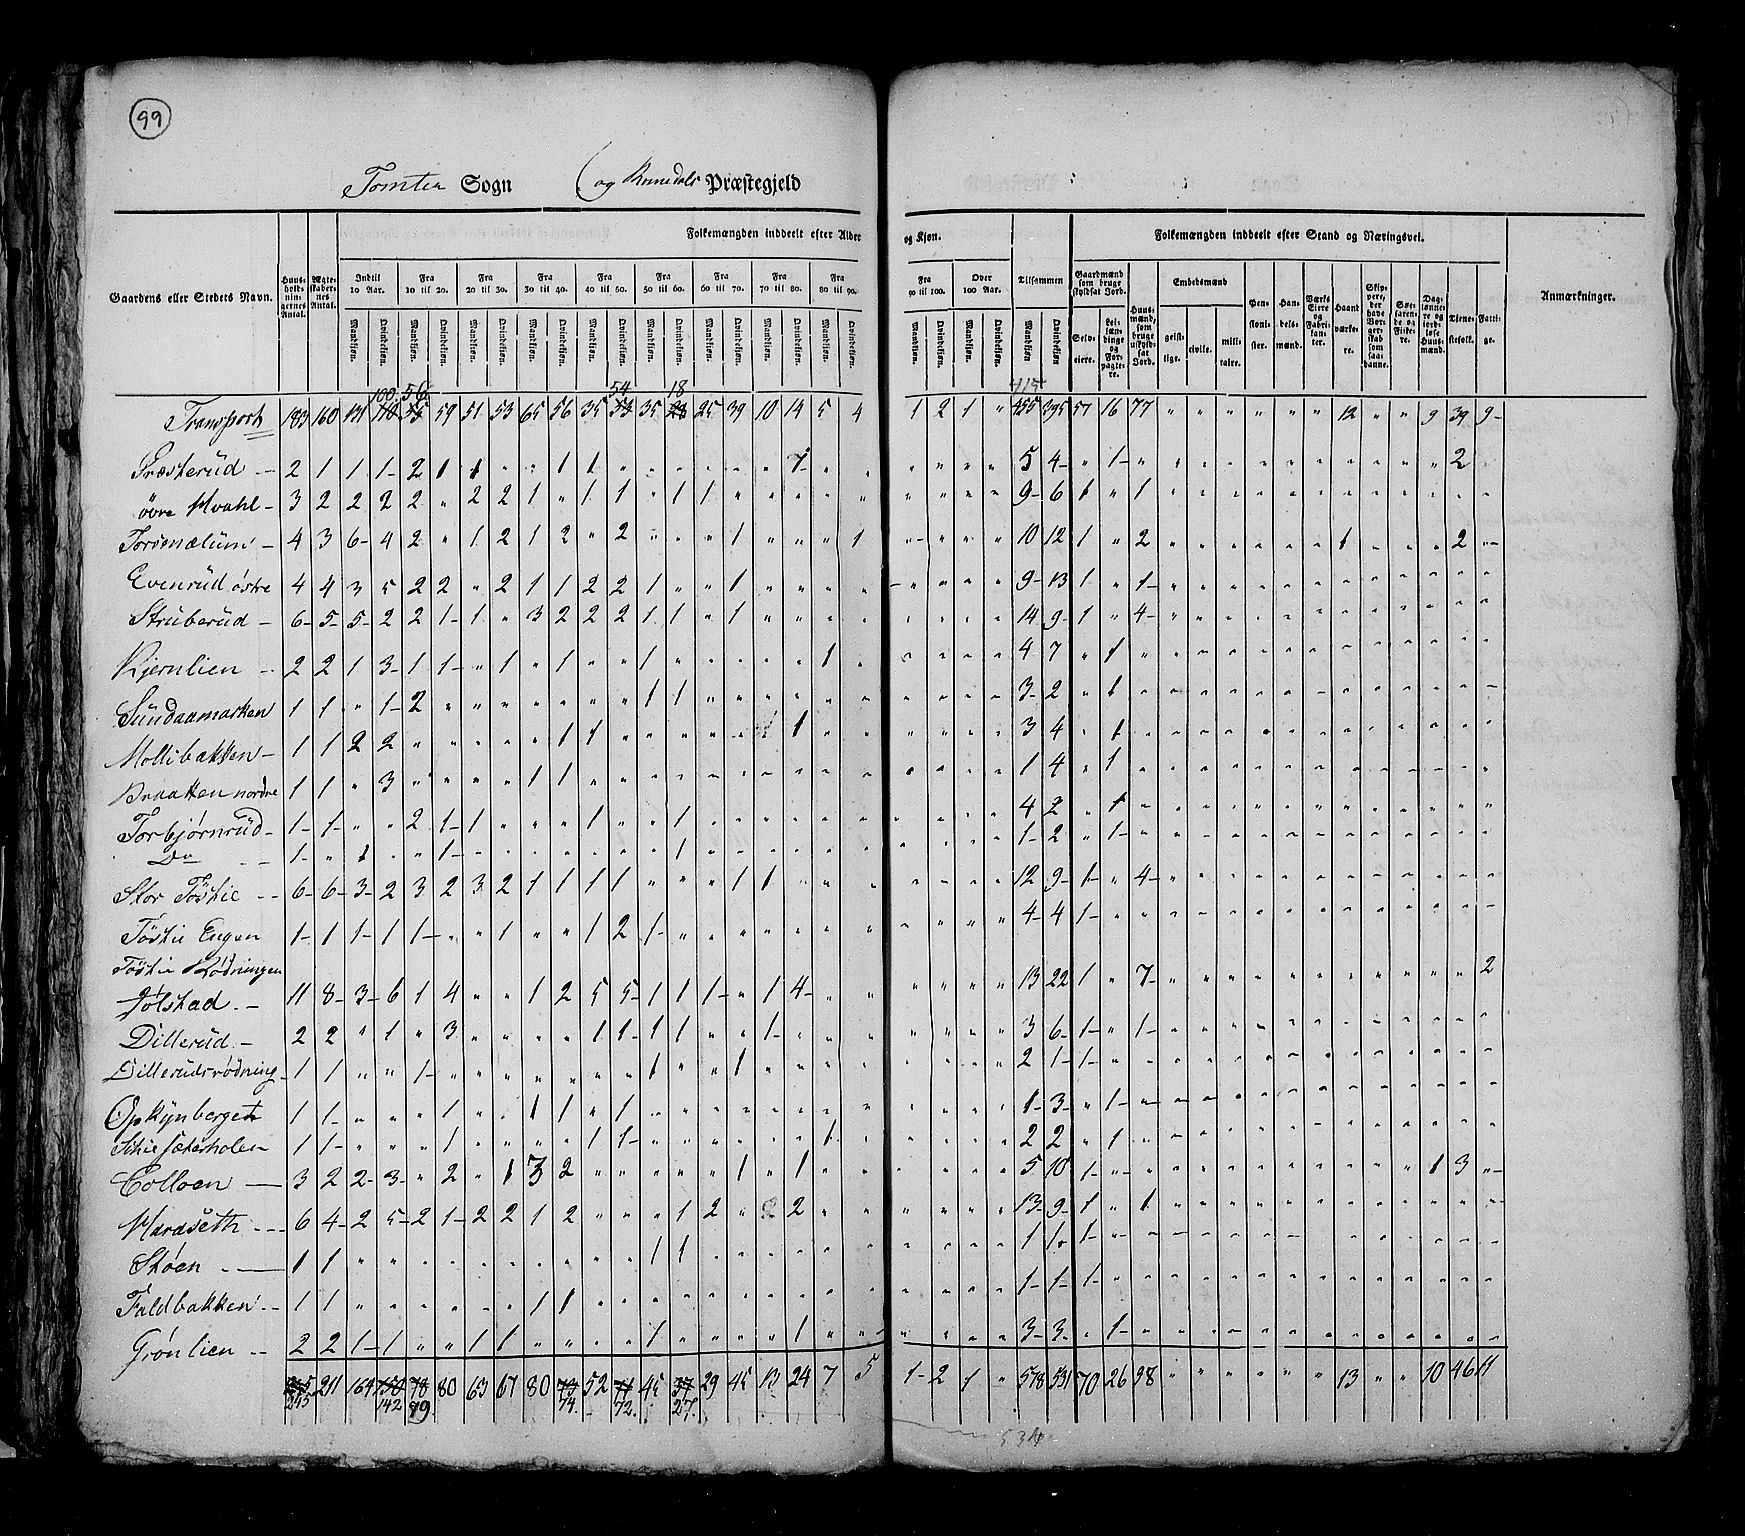 99
Tomten Sogn (og Runedals Præstegjeld
Gaardens eller Stedets Navn.
Huus-holdningernes Antal.
Ægteskabernes Antal.
Folkemængden inddeelt efter Alder og Kjøn.
Indtil 10 Aar. Fra 10 til 20. Fra 20 til 30. Fra 30 til 40. Fra 40 til 50. Fra 50 til 60. Fra 60 til 70. Fra 70 til 80. Fra 80 til 90. Fra 90 til 100. Over 100 Aar. Tilsammen
Mandkjøn. Qvindekjøn.
Folkemængden inddeelt efter Stand og Næringsvei.
Gaardmænd som bruge skyldsat Jord.
Selveiere. Leilændinge og Forpagtere.
Huusmænd, som bruge uskyldsat Jord.
Embedsmænd
geistlige. civile. militaire.
Pensionister. Handelsmænd. Værks Eiere og Fabrikanter. Haandværkere. Skippere, der have Borgerskab som saadanne. Søefarende og Fiskere. Daglønnere og jordløse Huusmænd. Tjenestefolk. Fattige.
Anmærkninger.
100. 56 54 18 415
Transport 183 160 131 110 55 59 51 53 65 56 35 53 35 28 25 39 10 14 5 4 1 2 1 " 455 395 57 16 77 " " " " " " 12 " " 9 39 9
Præsterüd 2 1 1 1 2 1 1 " " 1 1 " " " " " " 7 " " " " " " 5 4 " 1 " " " " " " " " " " " 2 "
øvre Hvahl 3 2 2 2 2 " 2 2 1 " 1 1 " 1 1 " " " " " " " " " 9 6 1 " 1 " " " " " " " " " " " "
Torsmælum 4 3 6 4 2 " 1 2 1 2 " 2 " " " 1 " " " 1 " " " " 10 12 1 " 2 " " " " " " 1 " " " 2 "
Evenrüd østre 4 4 3 5 2 2 " 2 1 1 2 2 1 " " 1 " " " " " " " " 9 13 1 " 1 " " " " " " " " " " " "
Strüberüd 6 5 5 2 2 1 1 " 3 2 2 2 1 1 " 1 " " " " " " " " 14 9 1 " 4 " " " " " " " " " " " "
Kjernlien 2 2 1 3 1 1 " 1 " 1 " " 1 " " " " " 1 " " " " " 4 7 " 1 " " " " " " " " " " " " "
Sundaamarken 1 1 " 1 2 " " " " " " " 1 1 " " " " " " " " " " 3 2 " 1 " " " " " " " " " " " " "
Mollibakken 1 1 2 2 " " " " " 1 1 " " " " " " 1 " " " " " " 3 4 " 1 " " " " " " " " " " " " "
Braatten nordre 1 1 " 3 " " " " 1 1 " " " " " " " " " " " " " " 1 4 " 1 " " " " " " " " " " " " "
Torbjørnrüd 1 1 " " 2 1 1 " " " 1 " " 1 " " " " " " " " " " 4 2 " 1 " " " " " " " " " " " " "
Do 1 " 1 " " 1 " " " " " " " 1 " " " " " " " " " " 1 2 " 1 " " " " " " " " " " " " "
Stor Töstie 6 6 3 2 3 2 3 2 1 1 1 1 " " " 1 1 " " " " " " " 12 9 1 " 4 " " " " " " " " " " " "
Töstie Engen 1 1 1 1 1 " " 1 " " 1 2 1 " " " " " " " " " " " 4 4 1 " " " " " " " " " " " " " "
Töstie Rödningen
Jølstad 11 8 3 6 1 4 " " 1 2 5 5 1 1 1 " 1 4 " " " " " " 13 22 1 " 7 " " " " " " " " " " " 2
Dillerüd 2 2 " 1 " 3 " " " " 1 1 1 1 " " 1 " " " " " " " 3 6 1 " 1 " " " " " " " " " " " "
Dillerüdsrødning 1 1 " " 1 " " " " " " " 1 " " 1 " " " " " " " " 2 1 1 " " " " " " " " " " " " " "
Opkjnberget 1 1 " " " 1 " " 1 1 " 1 " " " " " " " " " " " " 1 3 " 1 " " " " " " " " " " " " "
Sæterholen 1 1 " " " 1 " " " " 1 1 " " " " " " 1 " " " " " 2 2 " 1 " " " " " " " " " " " " "
Colloen 3 2 2 3 " 2 " 1 3 2 " " " " " 1 " 1 " " " " " " 5 10 1 " " " " " " " " " " " 1 3 "
Haraseth 6 4 2 5 2 1 2 2 1 2 " " " 1 2 " 2 2 " " " " " " 13 9 1 " 1 " " " " " " " " " " " "
Støen 1 1 " " " " " " " " " " 1 1 " " " " " " " " " " 1 1 1 " " " " " " " " " " " " " "
Faldbakken 1 1 " " " " " " 1 1 " " " " " " " " " " " " " " 1 1 1 " " " " " " " " " " " " " "
Grønlien 2 2 1 1 " " 1 1 " " " " 1 " " " " 1 " " " " " " 3 3 " 1 " " " " " " " " " " " " "
211 164 150 78 80 63 67 80 73 52 71 45 37 29 45 13 24 7 5 1 2 1 " 578 531 70 26 98 " " " " " " 13 " " 10 46 11
243 142 79 74. 72. 27.
534